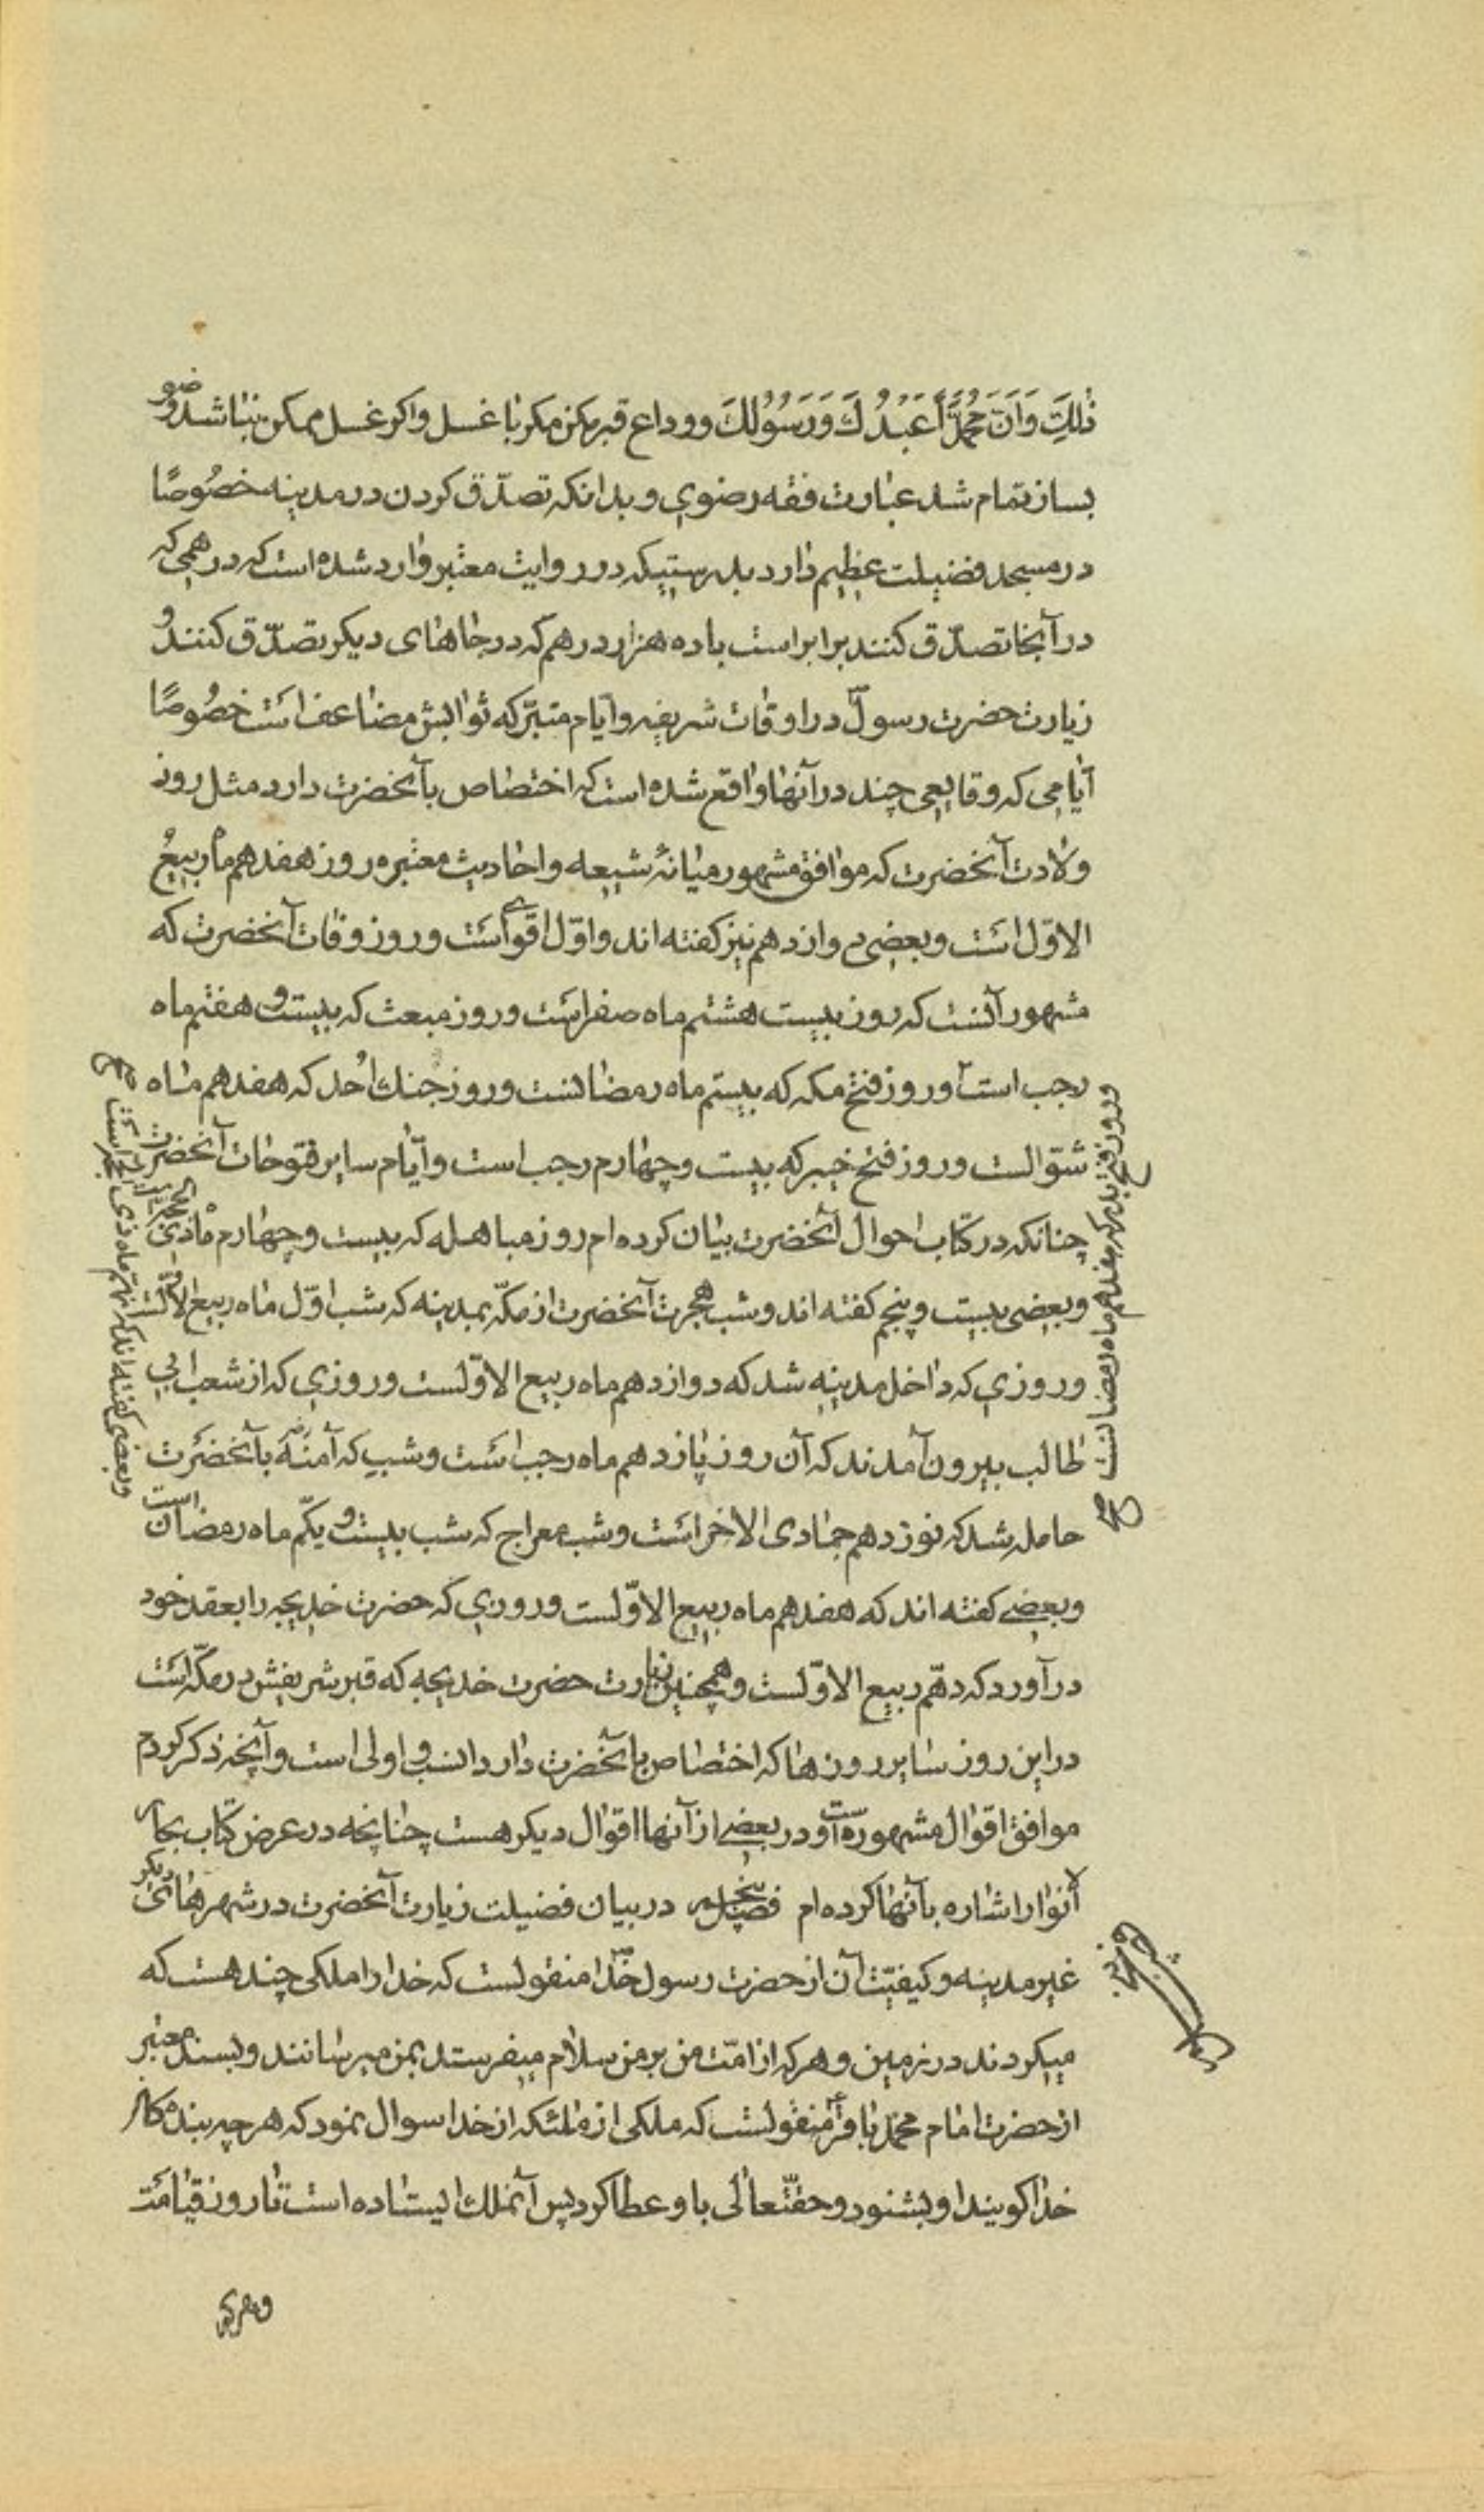 ذٰلِكَ وَاَنَّ مُحَمَّدًا عَبْدُكَ وَرَسُوُلُكَ ووداع قبر مکن مکر با غسل واکر غسل ممکن نباشد وضو
بساز تمام شد عبارت فقه رضوی و بدانکه تصدّق کردن در مدینه خصُوصًا
در مسجد فضیلت عظیم دارد بدرستیکه در روایت معتبر وارد شده است که درهمی که
در آنجا تصدّق کنند برابر است با ده هزار درهم که در جاهای دیکر تصدّق کنند و
زیارت حضرت رسول ص در اوقات شریفه و ایّام متبرّکه ثوابش مضاعف است خصُوصًا
ایّامی که وقایعی چند در آنها واقع شده است که اختصاص بآنحضرت دارد مثل روز
ولادت آنحضرت که موافق مشهور میانهٔ شیعه و احادیث معتبره روز هفدهم ماه ربیع
الاوّل است و بعضی دوازدهم نیز کفته اند و اوّل اقوی است و روز وفات آنحضرت که
مشهور آنست که روز بیست هشتم ماه صفر است و روز مبعث که بیست و هفتم ماه
رجب است و روز فتح مکه که بیستم ماه رمضانست و روز جنك اُحد که هفدهم ماه
شوّالست و روز فتح خیبر که بیست و چهارم رجب است و ایّام سایر فتوحات آنحضرت
چنانکه در کتاب احوال آنحضرت بیان کرده ام روز مباهله که بیست و چهارم ماه ذی الحجّه است
و بعضی بیست و پنجم کفته اند و شب هجرت آنحضرت از مکّه بمدینه که شب اوّل ماه ربیع الاوّلست
و روزی که داخل مدینه شد که دوازدهم ماه ربیع الاوّلست و روزی که از شعب ابی
طالب بیرون آمدند که آن روز پانزدهم ماه رجب است و شبی که آمنه رض بآنحضرت
حامله شد که نوزدهم جمادی الاخر است و شب معراج که شب بیست و یکّم ماه رمضان است
و بعضی کفته اند که هفدهم ماه ربیع الاوّلست و روزی که حضرت خدیجه را بعقد خود
در آورد که دهّم ربیع الاوّلست و همچنین زیارت حضرت خدیجه که قبر شریفش در مکّه است
در این روز سایر روزها که اختصاص بآنحضرت دارد انسب و اولی است و آنچه ذکر کردم
موافق اقوال مشهوره است و در بعضی از آنها اقوال دیکر هست چنانچه در عرض کتاب بحار
لأنوار اشاره بآنها کرده ام فصل پنجم در بیان فضیلت زیارت آنحضرت در شهرهای دیکر
غیر مدینه و کیفیّت آن از حضرت رسول خدا ص منقولست که خدا را ملکی چند هست که
میکردند در زمین و هر که از امّت من بر من سلام میفرستد بمن میرسانند و بسند معتبر
از حضرت امام محمّد باقر ع منقولست که ملکی از ملئکه از خدا سوال نمود که هر چه بندکان
خدا کویند او بشنود و حقتّعالی باو عطا کرد پس آنملك ایستاده است تا روز قیامت
و روز فتح بدر که هفدهم ماه رمضانست صح
و بعضی کفته اند که نهم ماه ذی الحجّه است صح